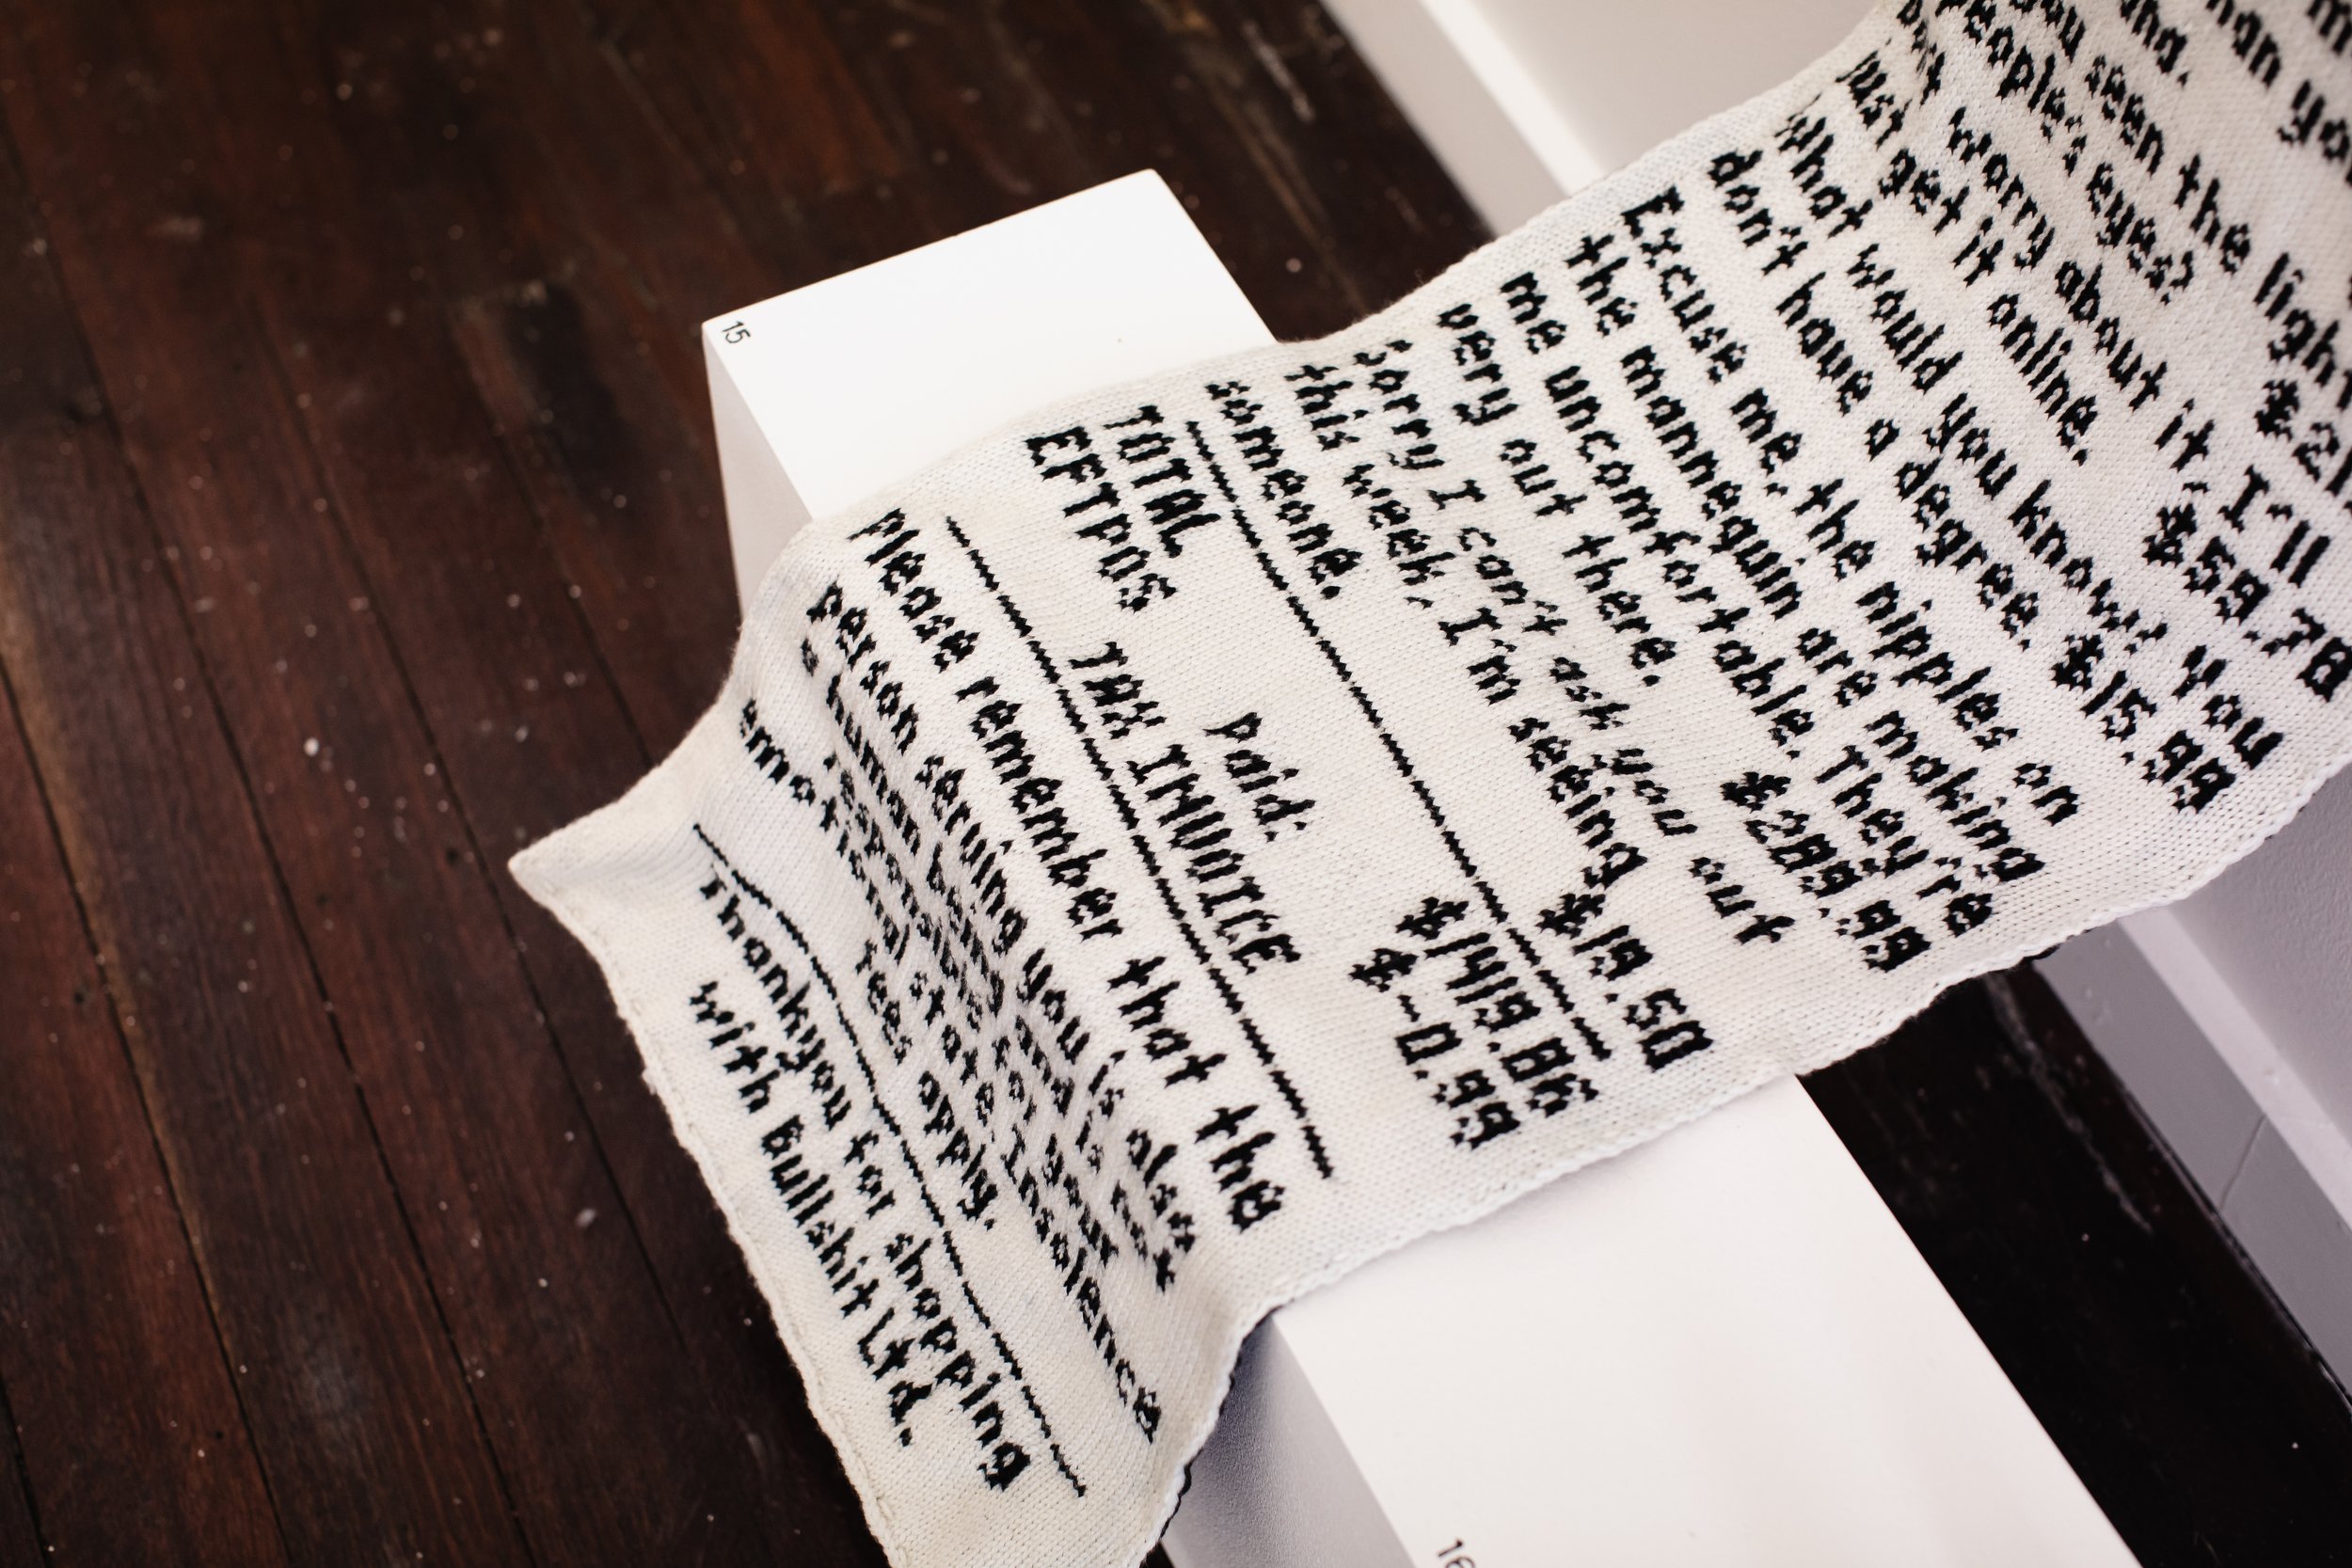 you
you seen the light
people's eyes?
Don't worry about it, I'll
just get it online. $59.78
What would you know? You
don't have a degree. $15.99
Excuse me, the nipples on
the mannequin are making
me uncomfortable. They're
very out there. $289.99
Sorry I can't ask you out
this week, I'm seeing
someone. $19.50
TOTAL $1419.86
EFTPOS Paid: $-0.99
TAX INVOICE
Please remember that the
person serving you is also
a human being and is not
responsible for your
emotional state. Insolence
fees apply.
Thankyou for shopping
with Bullshit Ltd.
15
16